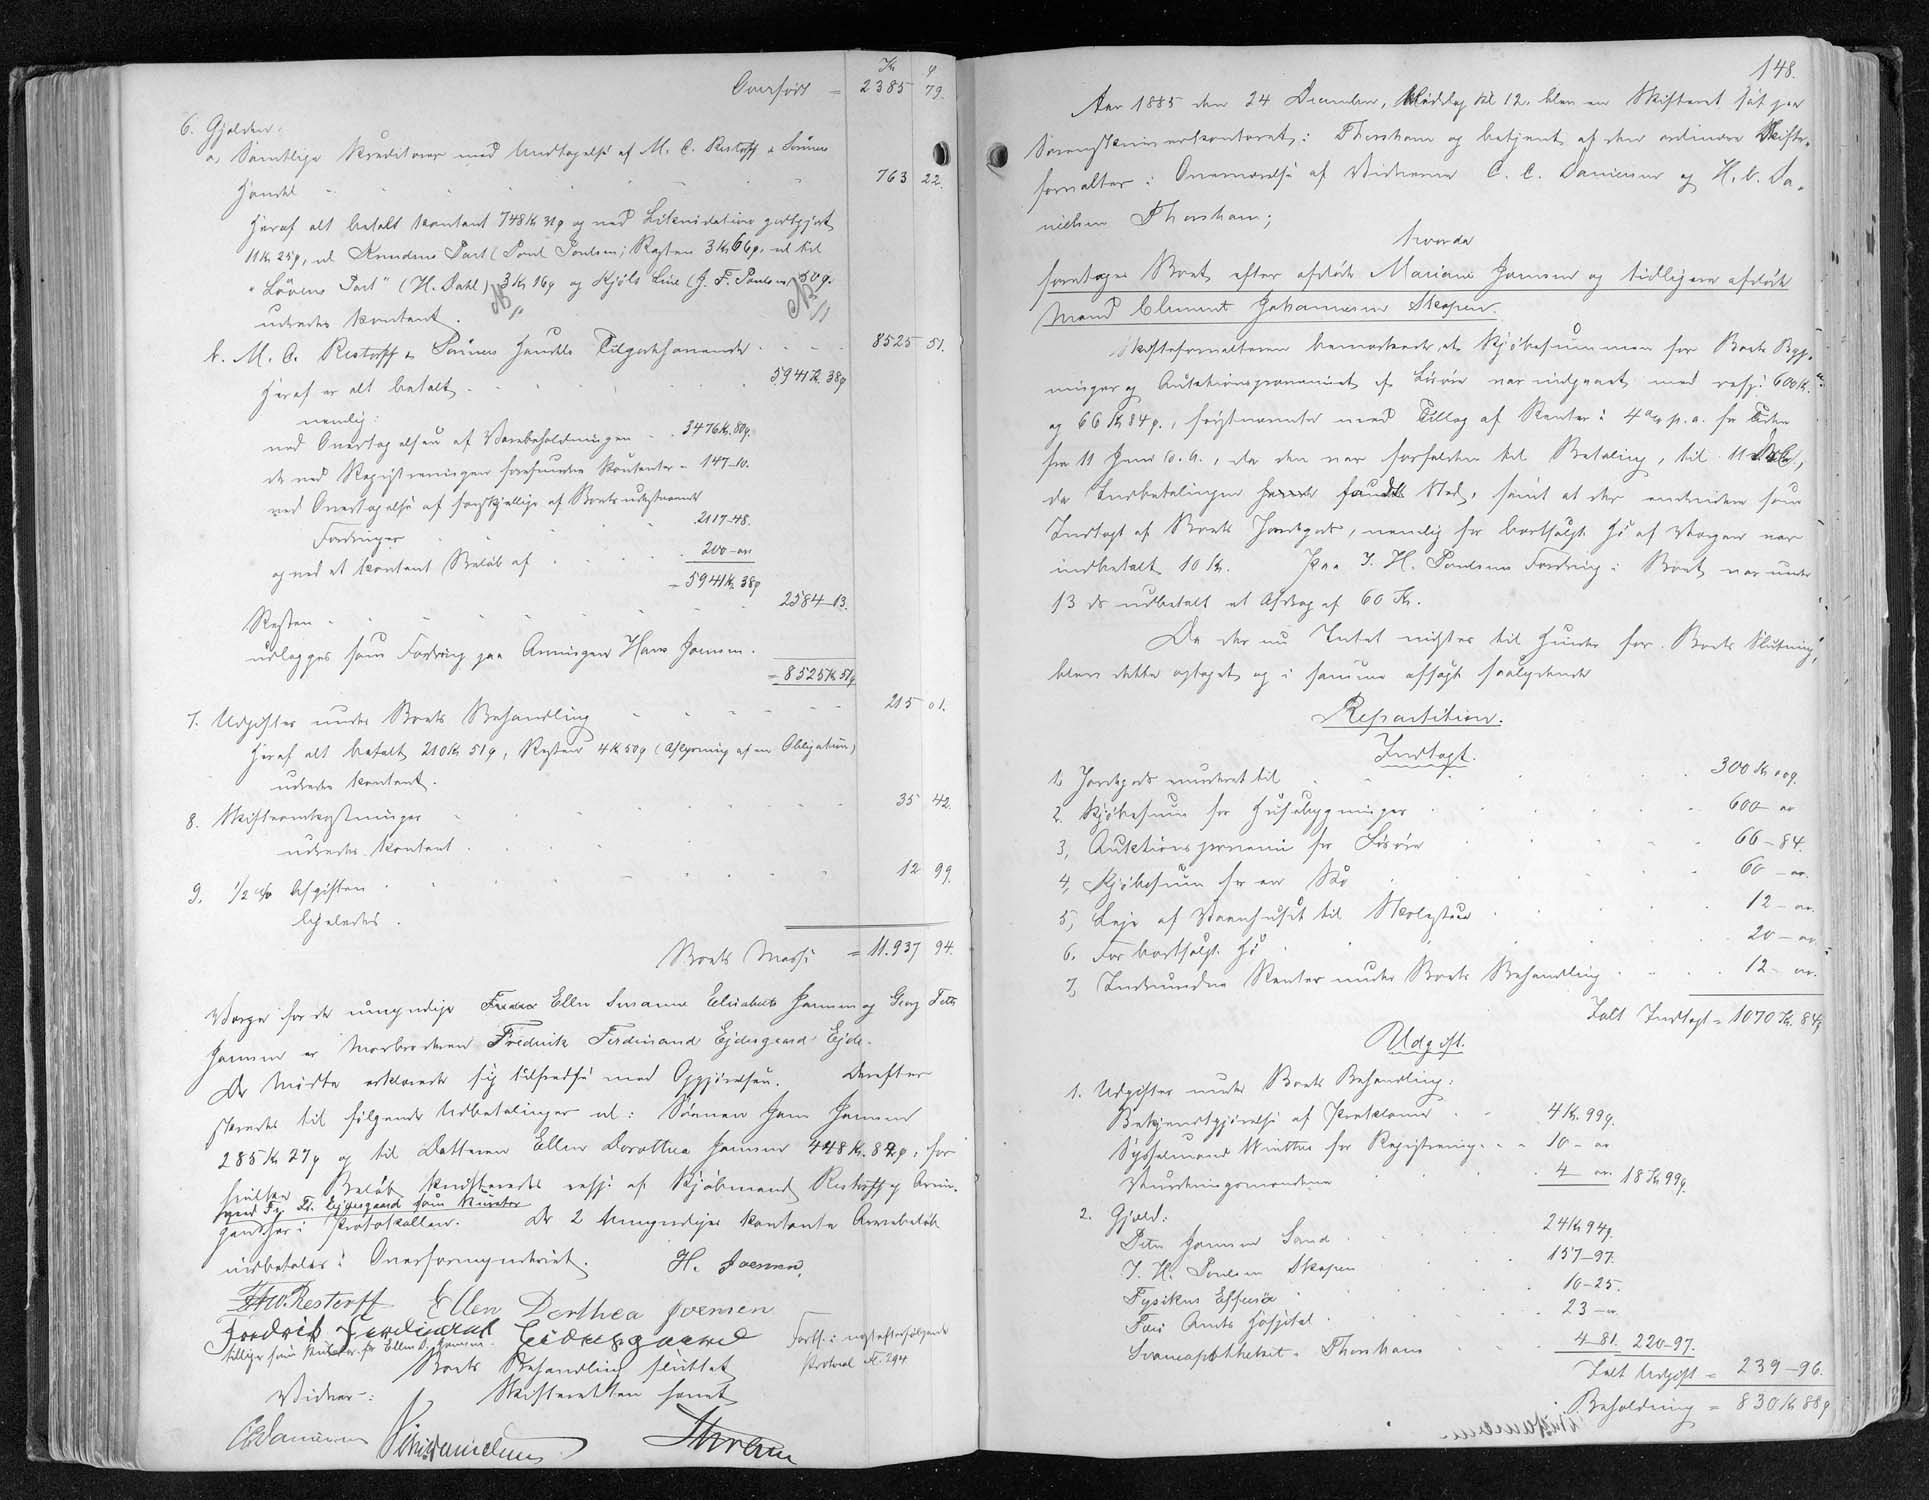 Kr. ø
Overført = 2385 79.
6. Gjelden:
a, Samtlige Kreditorer med Undtagelse af M. C. Restorff & Sönners
Handel 763 22.
Heraf alt betalt kontant 748 Kr 31 ø og ved Likvidation godtgjort
11 Kr 25 ø, ul Poul Poulsen; Resten 3 Kr 66 ø, ul til
(H. Dahl) 3 Kr 16 ø og Kjöls Line (J. F. Poulsen) 50 ø.
udredes kontant.
b. M. C. Restorff & Sönners Handels Tilgodehavende 8525 51.
Heraf er alt betalt 5941 Kr. 38 ø
nemlig:
ved Overtagelsen af Varebeholdningen 3476 Kr. 80 ø.
de ved Registreringen forefundne Kontanter - 147-10.
ved Overtagelse af forskjellige af Boets udestaaende
Fordringer 2117-48.
og ved et kontant Beløb af 200-"
= 5941 Kr 38 ø
Resten 2584-13.
udlægges som Fordring paa Arvingen Hans Joensen.
= 8525 Kr 51 ø
7. Udgifter under Boets Behandling 215 01.
Heraf alt betalt 210 Kr 51 ø, Resten 4 Kr 50 ø (Aflysning af en Obligation)
udredes kontant.
8. Skifteomkostninger 35 42.
udredes kontant.
9. 1/2 % Afgiften 12 99.
ligeledes.
Boets Masse = 11.937 94.
Værge for de umyndige Ellen Susanne Elisabeth Joensen og Georg
Joensen er Morbroderen Frederik Ferdinand Ejdesgaard Ejde.
De Mødte erklærede sig tilfredse med Opgjørelsen. Derefter
skredes til følgende Udbetalinger ul: Sønnen Jens Joensen
285 Kr 27 ø og til Datteren Ellen Dorothea Joensen 448 Kr. 87 ø, for
hvilke Beløb kvitteredes resp. af Kjøbmand Restorff og Arvin-
med Fr. Fr. Ejdesgaard som Kurator
gen her i Protokollen. De 2 Umyndiges kontante Arvebeløb
indbetales i Overformynderiet. H. Joensen,
Restorff Ellen Dorthea Joensen
Fredrik Ferdinand Eidesgaard
tillige som Kurator for Ellen D. Joensen.
Forts. i næstefterfølgende
Protocol Fol. 294
Boets Behandling sluttet
Skifteretten hævet
Vidner:
CCDanielsen HBDanielsen
148.
Aar 1885 den 24 December, Middag Kl 12, blev en Skifteret sat paa
Sorenskriverkontoret i Thorshavn og betjent af den ordinære Skifte-
forvalter i Overværelse af Vidnerne C. C. Danielsen og H. B. Da-
nielsen Thorshavn;
hvorda
foretoges Boet efter afdøde Mariane Joensen og tidligere afdøde
Mand Clement Johannesen Skopen.
Skifteforvalteren bemærkede, at Kjøbesummen for Boets Byg-
ninger og Auktionsprovenuet af Løsøre var indgaaet med resp. 600 Kr.
og 66 Kr 84 ø., førstnævnte med Tillæg af Renter á 4 % p. a. for Tiden
fra 11 Juni d. A., da den var forfalden til Betaling, til 11 Decbr,
da Indbetalingen fandt Sted, samt at der endvidere som
Indtægt af Boets Jordgods, nemlig for bortsolgt Hø af Værgen var
indbetalt 10 Kr. Paa J. H. Poulsens Fordring i Boet var under
13 ds udbetalt et Afdrag af 60 Kr.
Da der nu Intet mødte til Hinder for Boets Slutning,
blev dette optaget og i samme afsagt saalydende
Repartition.
Indtægt.
1, Jordgods vurderet til 300 Kr 00 ø.
2. Kjøbesum for Husebygninger 600 - "
3, Auktionsprovenu for Løsøre 66-84.
4, Kjøbesum for en Ko 60 - ".
5, Leje af Vaanhuset til Skolestue 12 - ".
6. For bortsolgt Hø 20 - ".
7, Indvundne Renter under Boets Behandling 12 - ".
Ialt Indtægt = 1070 Kr. 84 ø
Udgift.
1. Udgifter under Boets Behandling:
Bekjendtgjørelse af Proklama 4 Kr. 99 ø.
Sysselmand Winther for Registrering 10 - "
Vurderingsmændene 4 " 18 Kr 99 ø.
2. Gjæld:
Peter Joensen Sand 24 Kr 94 ø.
J. H. Poulsen Skopen 157-97.
Fysikus Effersøe 10-25.
Færø Amts Hospital 23-".
Svaneapotheket i Thorshavn 4-81. 220-97.
Ialt Udgift = 239-96.
Beholdning = 830 Kr 88 ø